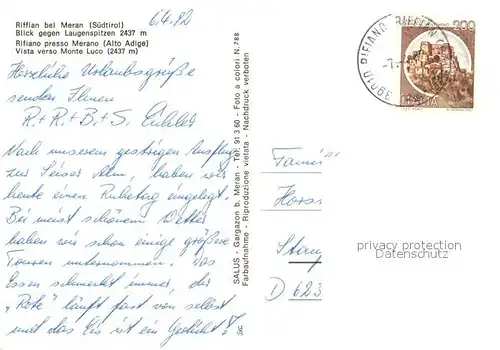 Riffian bei Meran (Südtirol)
Blick gegen Laugenspitzen 2437 m
Rifiano presso Merano (Alto Adige)
Vista verso Monte Luco (2437 m)
6.4.92
Herzliche Urlaubsgrüße
senden Ihnen
R.+R.+B.+S. Eichler
Nach unserem gestrigen Ausflug
zur Seiser Alm, haben wir
heute einen Ruhetag eingelegt.
Bei meist schönem Wetter
haben wir schon einige größere
Touren unternommen. Das
Essen schmeckt immer, der
"Rote" läuft fast von selbst
und das Eis ist ein Gedicht!
SALUS - Gargazon b. Meran - Tel. 91 3 60 - Foto a colori N. 788
Farbaufnahme - Riproduzione vietata - Nachdruck verboten
39010 RIFIANO RIFFIAN
200
ITALIA
Famili
Hors
D 623
privacy protection
Datenschutz